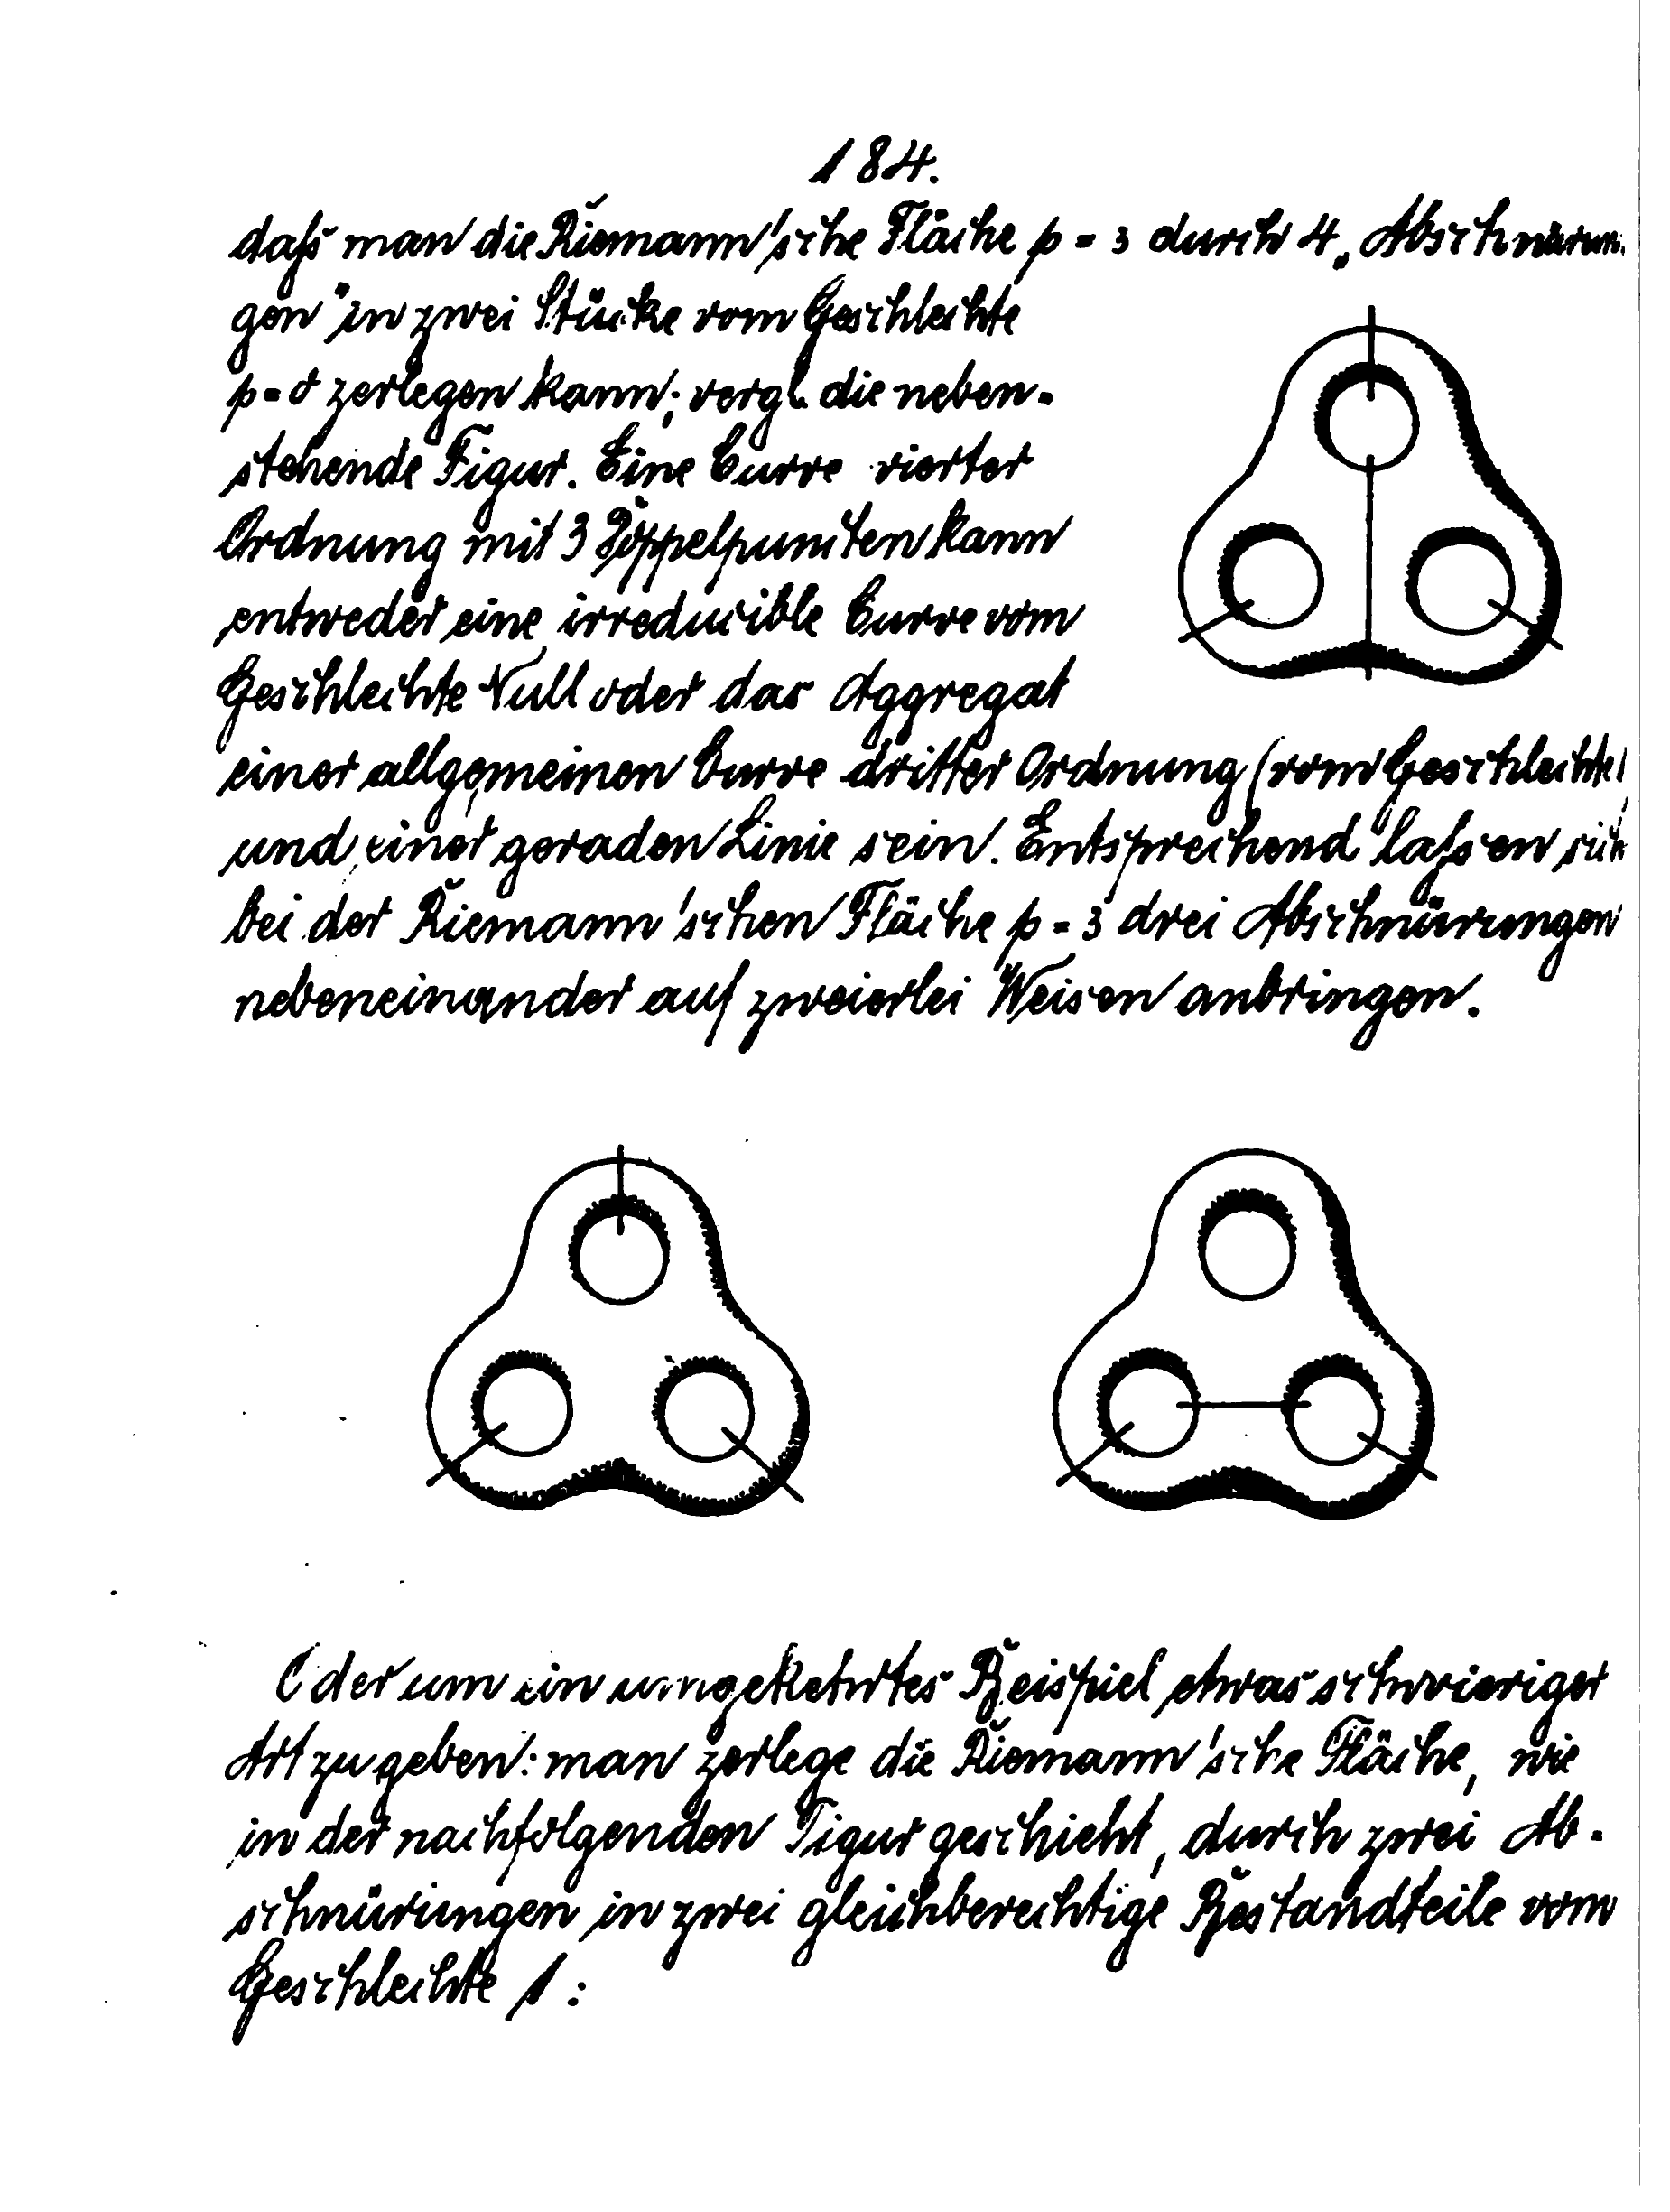 184.
daſs man die Riemann'sche Fläche p = 3 durch 4 „Abschnürun-
gen" in zwei Stücke vom Geschlechte
p = 0 zerlegen kann; vergl. die neben-
stehende Figur. Eine Curve vierter
Ordnung mit 3 Doppelpuncten kann
entweder eine irreducible Curve vom
Geschlechte Null oder das Aggregat
einer allgemeinen Curve dritter Ordnung (vom Geschlechte 1
und einer geraden Linie sein. Entsprechend laſsen sich
bei der Riemann'schen Fläche p = 3 drei Abschnürungen
nebeneinander auf zweierlei Weisen anbringen.
Oder um ein umgekehrtes Beispiel etwas schwieriger
Art zu geben: man zerlege die Riemann'sche Fläche, wie
in der nachfolgenden Figur geschieht, durch zwei Ab-
schnürungen in zwei gleichberechtige Bestandteile vom
Geschlechte 1: